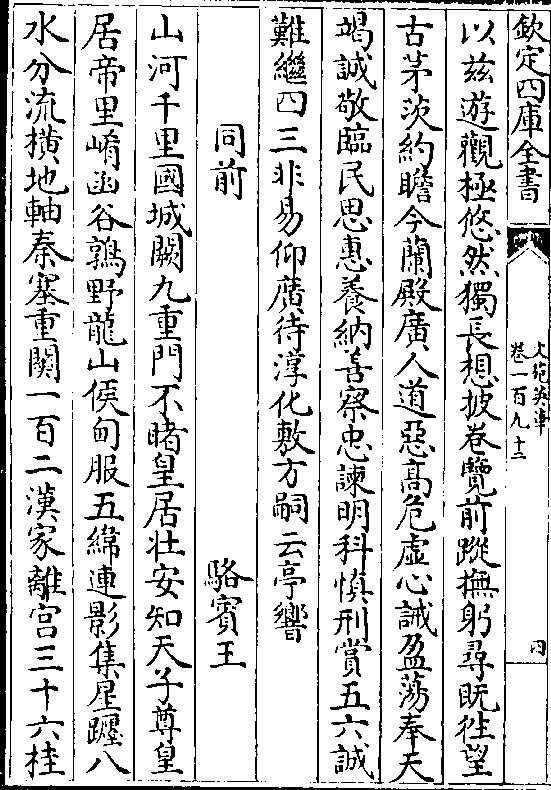 欽定四庫全書
文苑英華
卷一百九十二
四
以兹遊觀極悠然獨長想披卷覽前蹤撫躬尋既往望
古茅茨約瞻今蘭殿廣人道惡髙危虚心誡盈蕩奉天
竭誠敬臨民思惠養納善察忠諫明科慎刑賞五六誠
難繼四三非易仰廣待淳化敷方嗣云亭響
同前
駱賓王
山河千里國城闕九重門不睹皇居壯安知天子尊皇
居帝里崤函谷鶉野龍山侯甸服五緯連影集星躔八
水分流橫地軸秦塞重闗一百二漢家離宫三十六桂